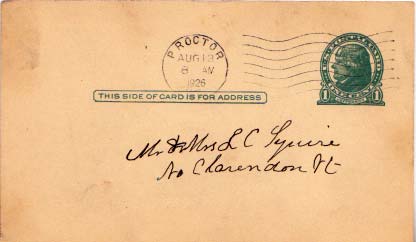 PROCTOR
AUG 13
6 AM
1926
THIS SIDE OF CARD IS FOR ADDRESS
1 1
Mr & Mrs L C Squire
No Clarendon Vt